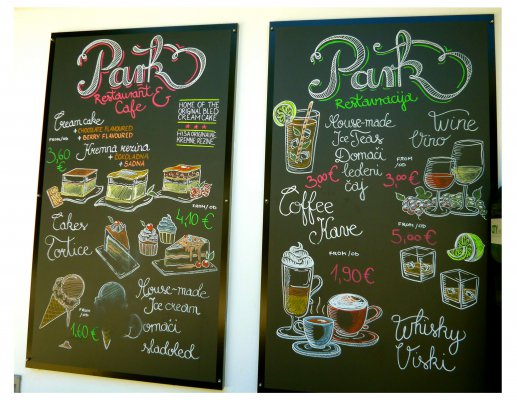 Park
Restaurant &
Cafe
HOME OF THE
ORIGINAL BLED
CREAM CAKE
HIŠA ORIGINALNE
KREMNE REZINE
Cream cake
+ CHOCOLATE FLAVOURED
+ BERRY FLAVOURED
FROM/OD
3,60 €
Kremna rezina
+ ČOKOLADNA
+ SADNA
Cakes
FROM/OD
4,10 €
Tortice
House-made
Ice cream
FROM/OD
1,60 €
Domači
sladoled
Park
Restavracija
House-made
Ice Teas
Domači
ledeni
čaj
3,00 €
Wine
Vino
FROM/OD
3,00 €
Coffee
Kave
FROM/OD
1,90 €
FROM/OD
5,00 €
Whisky
Viski